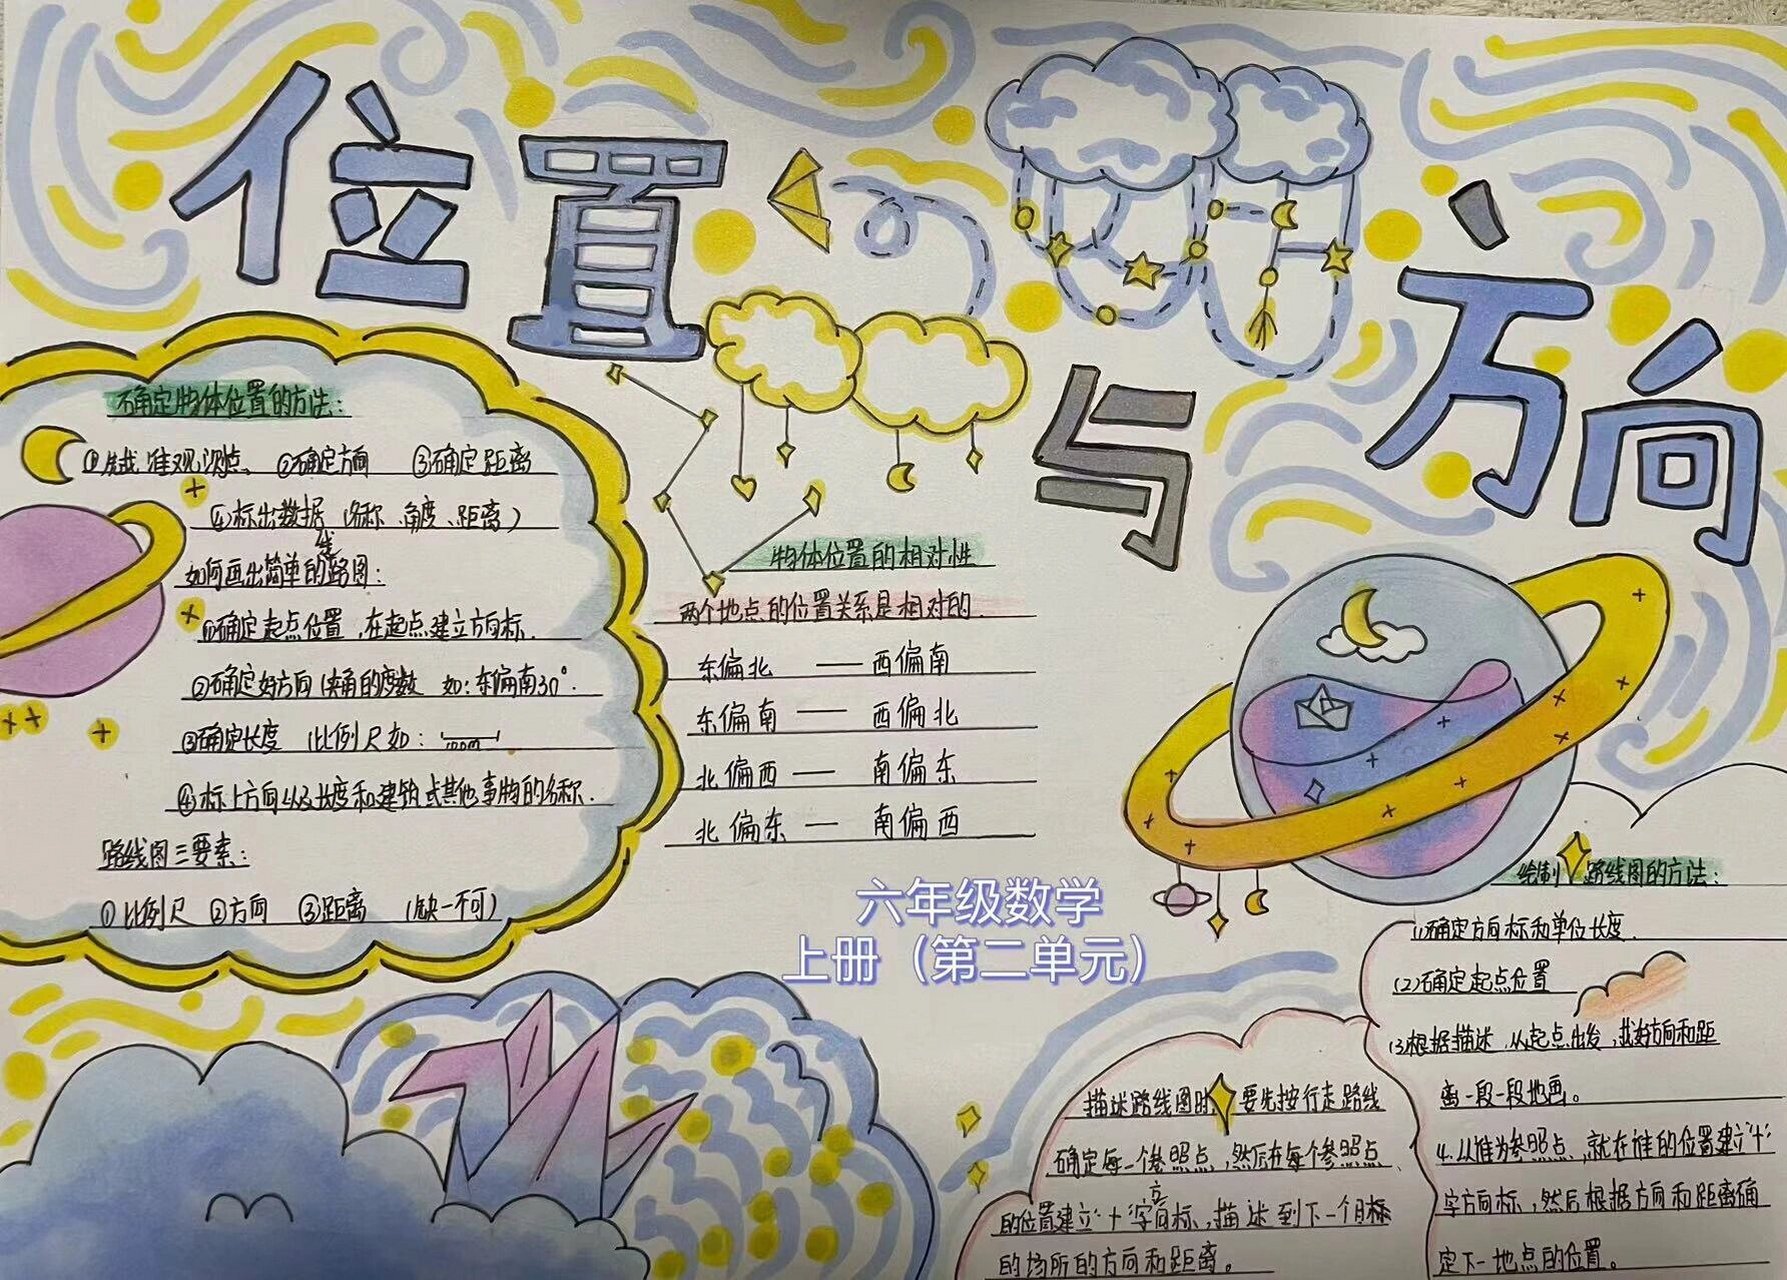 位置与方向
确定物体位置的方法：
①先找准观测点、②确定方向 ③确定距离
④标出数据（名称、角度、距离）
如何画出简单的路线图：
①确定起点位置，在起点建立方向标.
②确定好方向（夹角的度数 如：东偏南30°.
③确定长度（比例尺如：
④标上方向以及长度和建筑或其他事物的名称.
路线图三要素：
①比例尺 ②方向 ③距离 （缺一不可）
物体位置的相对性
两个地点的位置关系是相对的.
东偏北 —— 西偏南
东偏南 —— 西偏北
北偏西 —— 南偏东
北偏东 — 南偏西
六年级数学
上册（第二单元）
描述路线图时 要先按行走路线
确定每一个参照点，然后在每个参照点
的位置建立“十”字方向标，描述到下一个目标
的场所的方向和距离。
绘制路线图的方法：
(1)确定方向标和单位长度.
(2)确定起点位置
(3)根据描述，从起点出发，找好方向和距
离一段一段地画。
4.以谁为参照点，就在谁的位置建立“十”
字方向标，然后根据方向和距离确
定下一地点的位置。